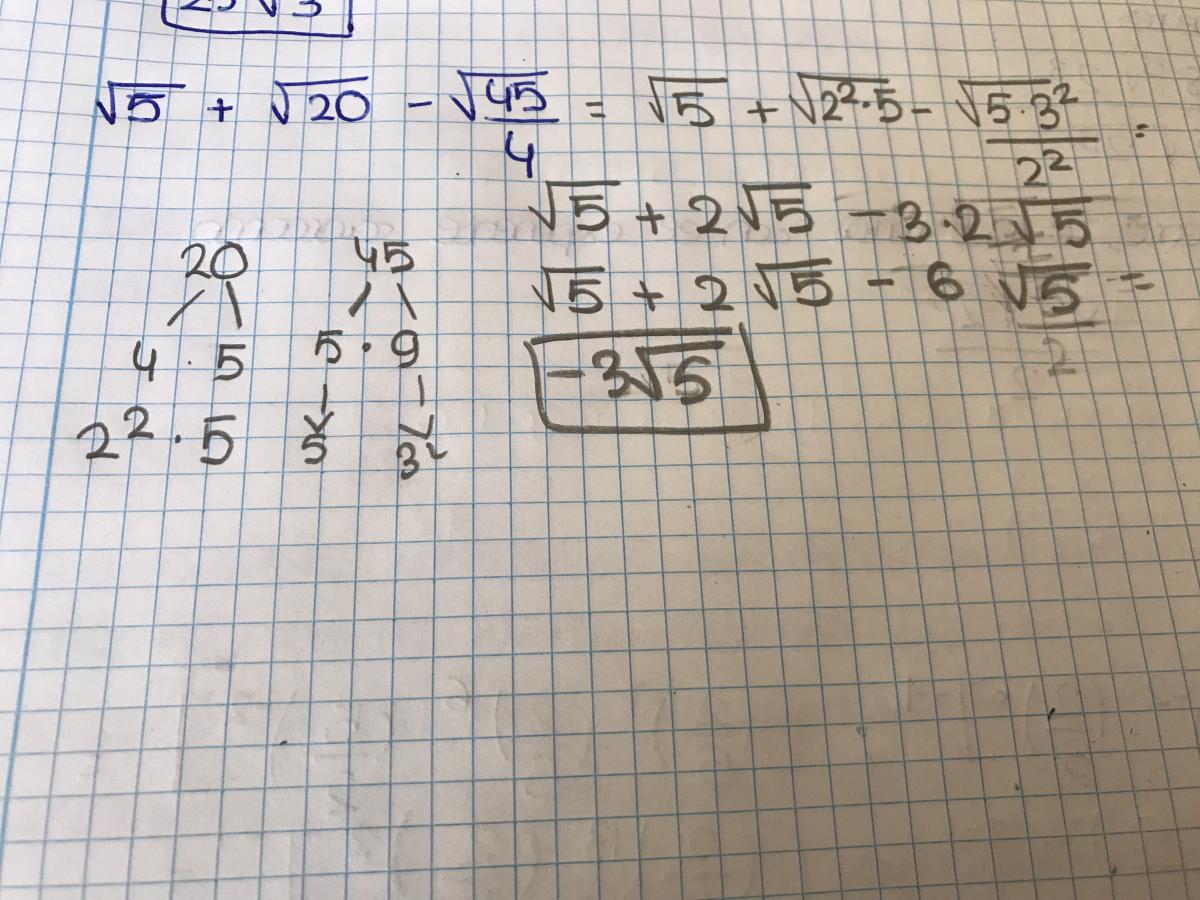 25√3
√5 + √20 - √45/4 = √5 + √2²·5 - √5·3²/2² =
√5 + 2√5 - 3·2√5
√5 + 2√5 - 6√5 =
-3√5
20
4 · 5
2² · 5
45
5 · 9
5 3²